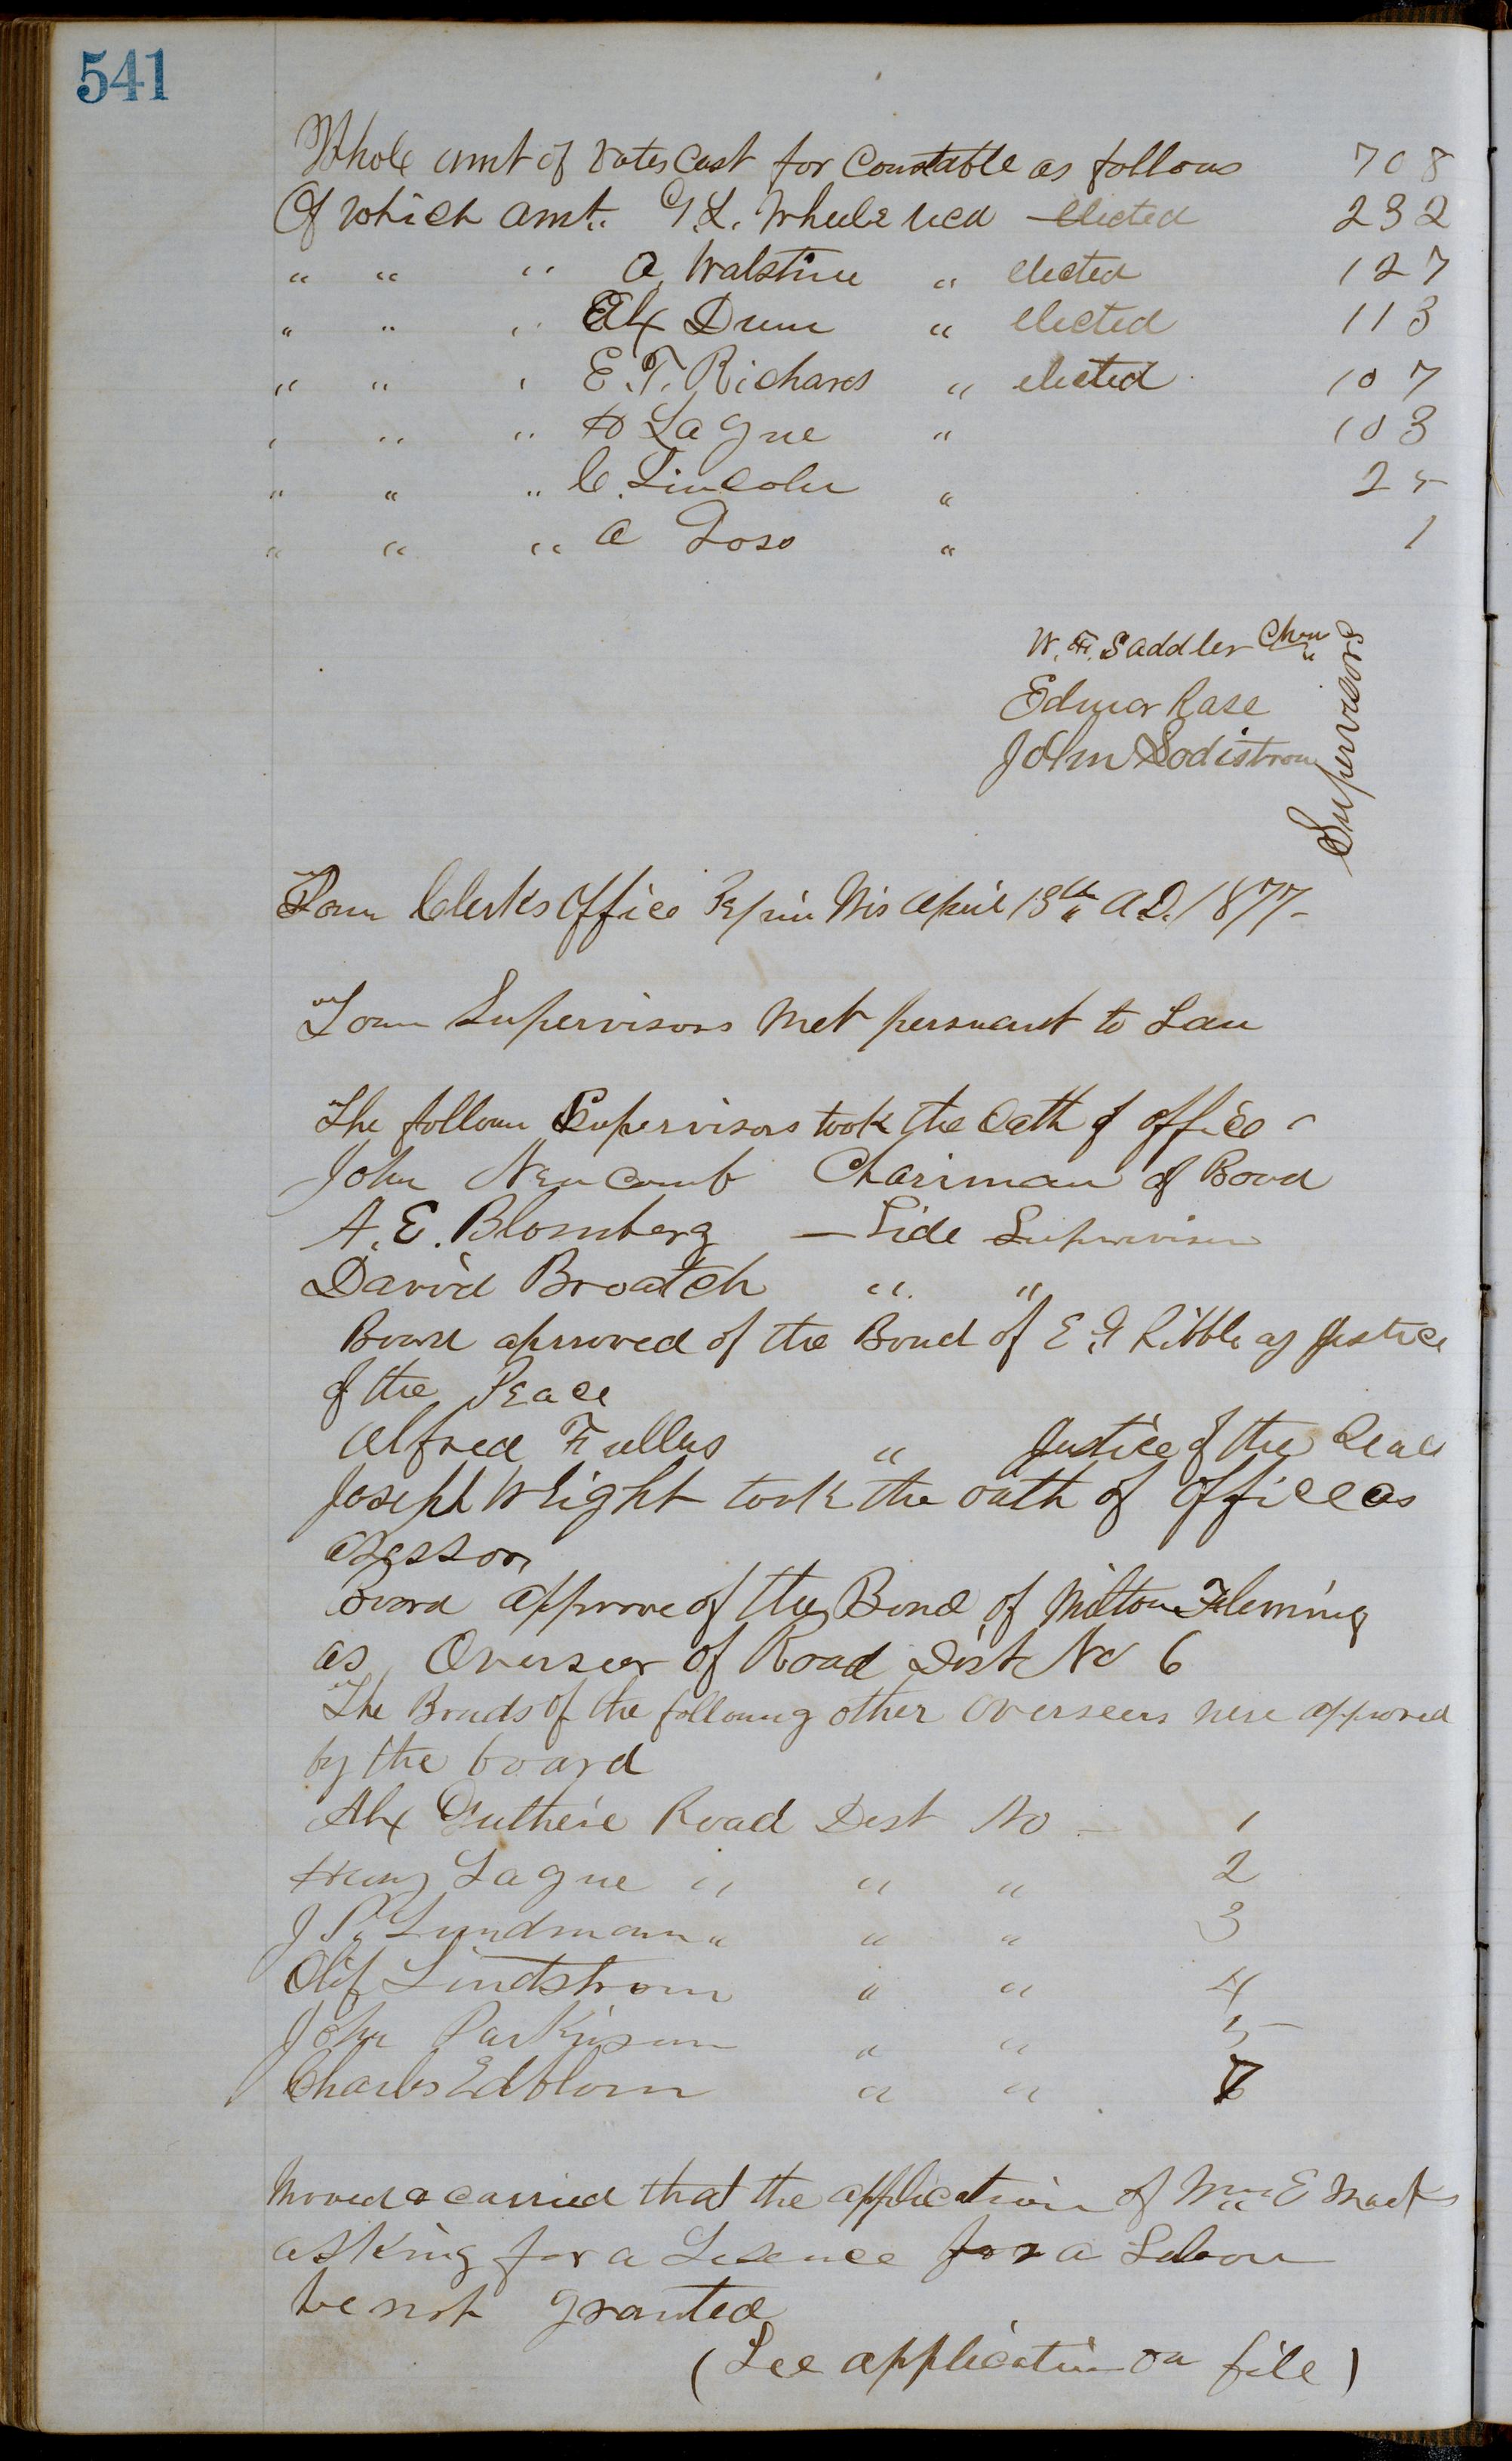 541
Whole amt of Votes Cast for Constable as follows 708
Of which amt. G. L. Wheele recd - elected 232
" " " A. Walstine " elected 127
" " " Alx Dunn " elected 113
" " " E. T. Richards " elected 107
" " " H Lague " 103
" " " C. Lincoln " 25
" " " A Goso " 1
W. F. Saddler Chm
Edmor Rase
John Sodistrom
Supervisors
Town Clerks Office Pepin Wis April 13th A.D. 1877-
Town Supervisors Met persuant to Law
The follown Supervisors took the Oath of office
John Newcomb Chairman of Board
A. E. Blomberg - Side Supervisor
David Broatch " "
Board aprroved of the Bond of E. G Ribble as Justice
of the Peace
Alfred Fuller " Justice of the Peace
Joseph Wright took the oath of office as
assessor
Board approve of the Bond of Milton Fleming
as Overseer of Road Dist No 6
The Bonds of the following other Overseers were approved
by the board
Alx Guthrie Road Dist No - 1
Henry Lague " " " 2
J P. Lundmann " " " 3
Olif Lindstrom " " 4
John Parkinson " " 5
Charles Edblom " " 7
Moved & carried that the application of Wm E Mack
asking for a Lisence for a Saloon
be not granted
(See application on file)